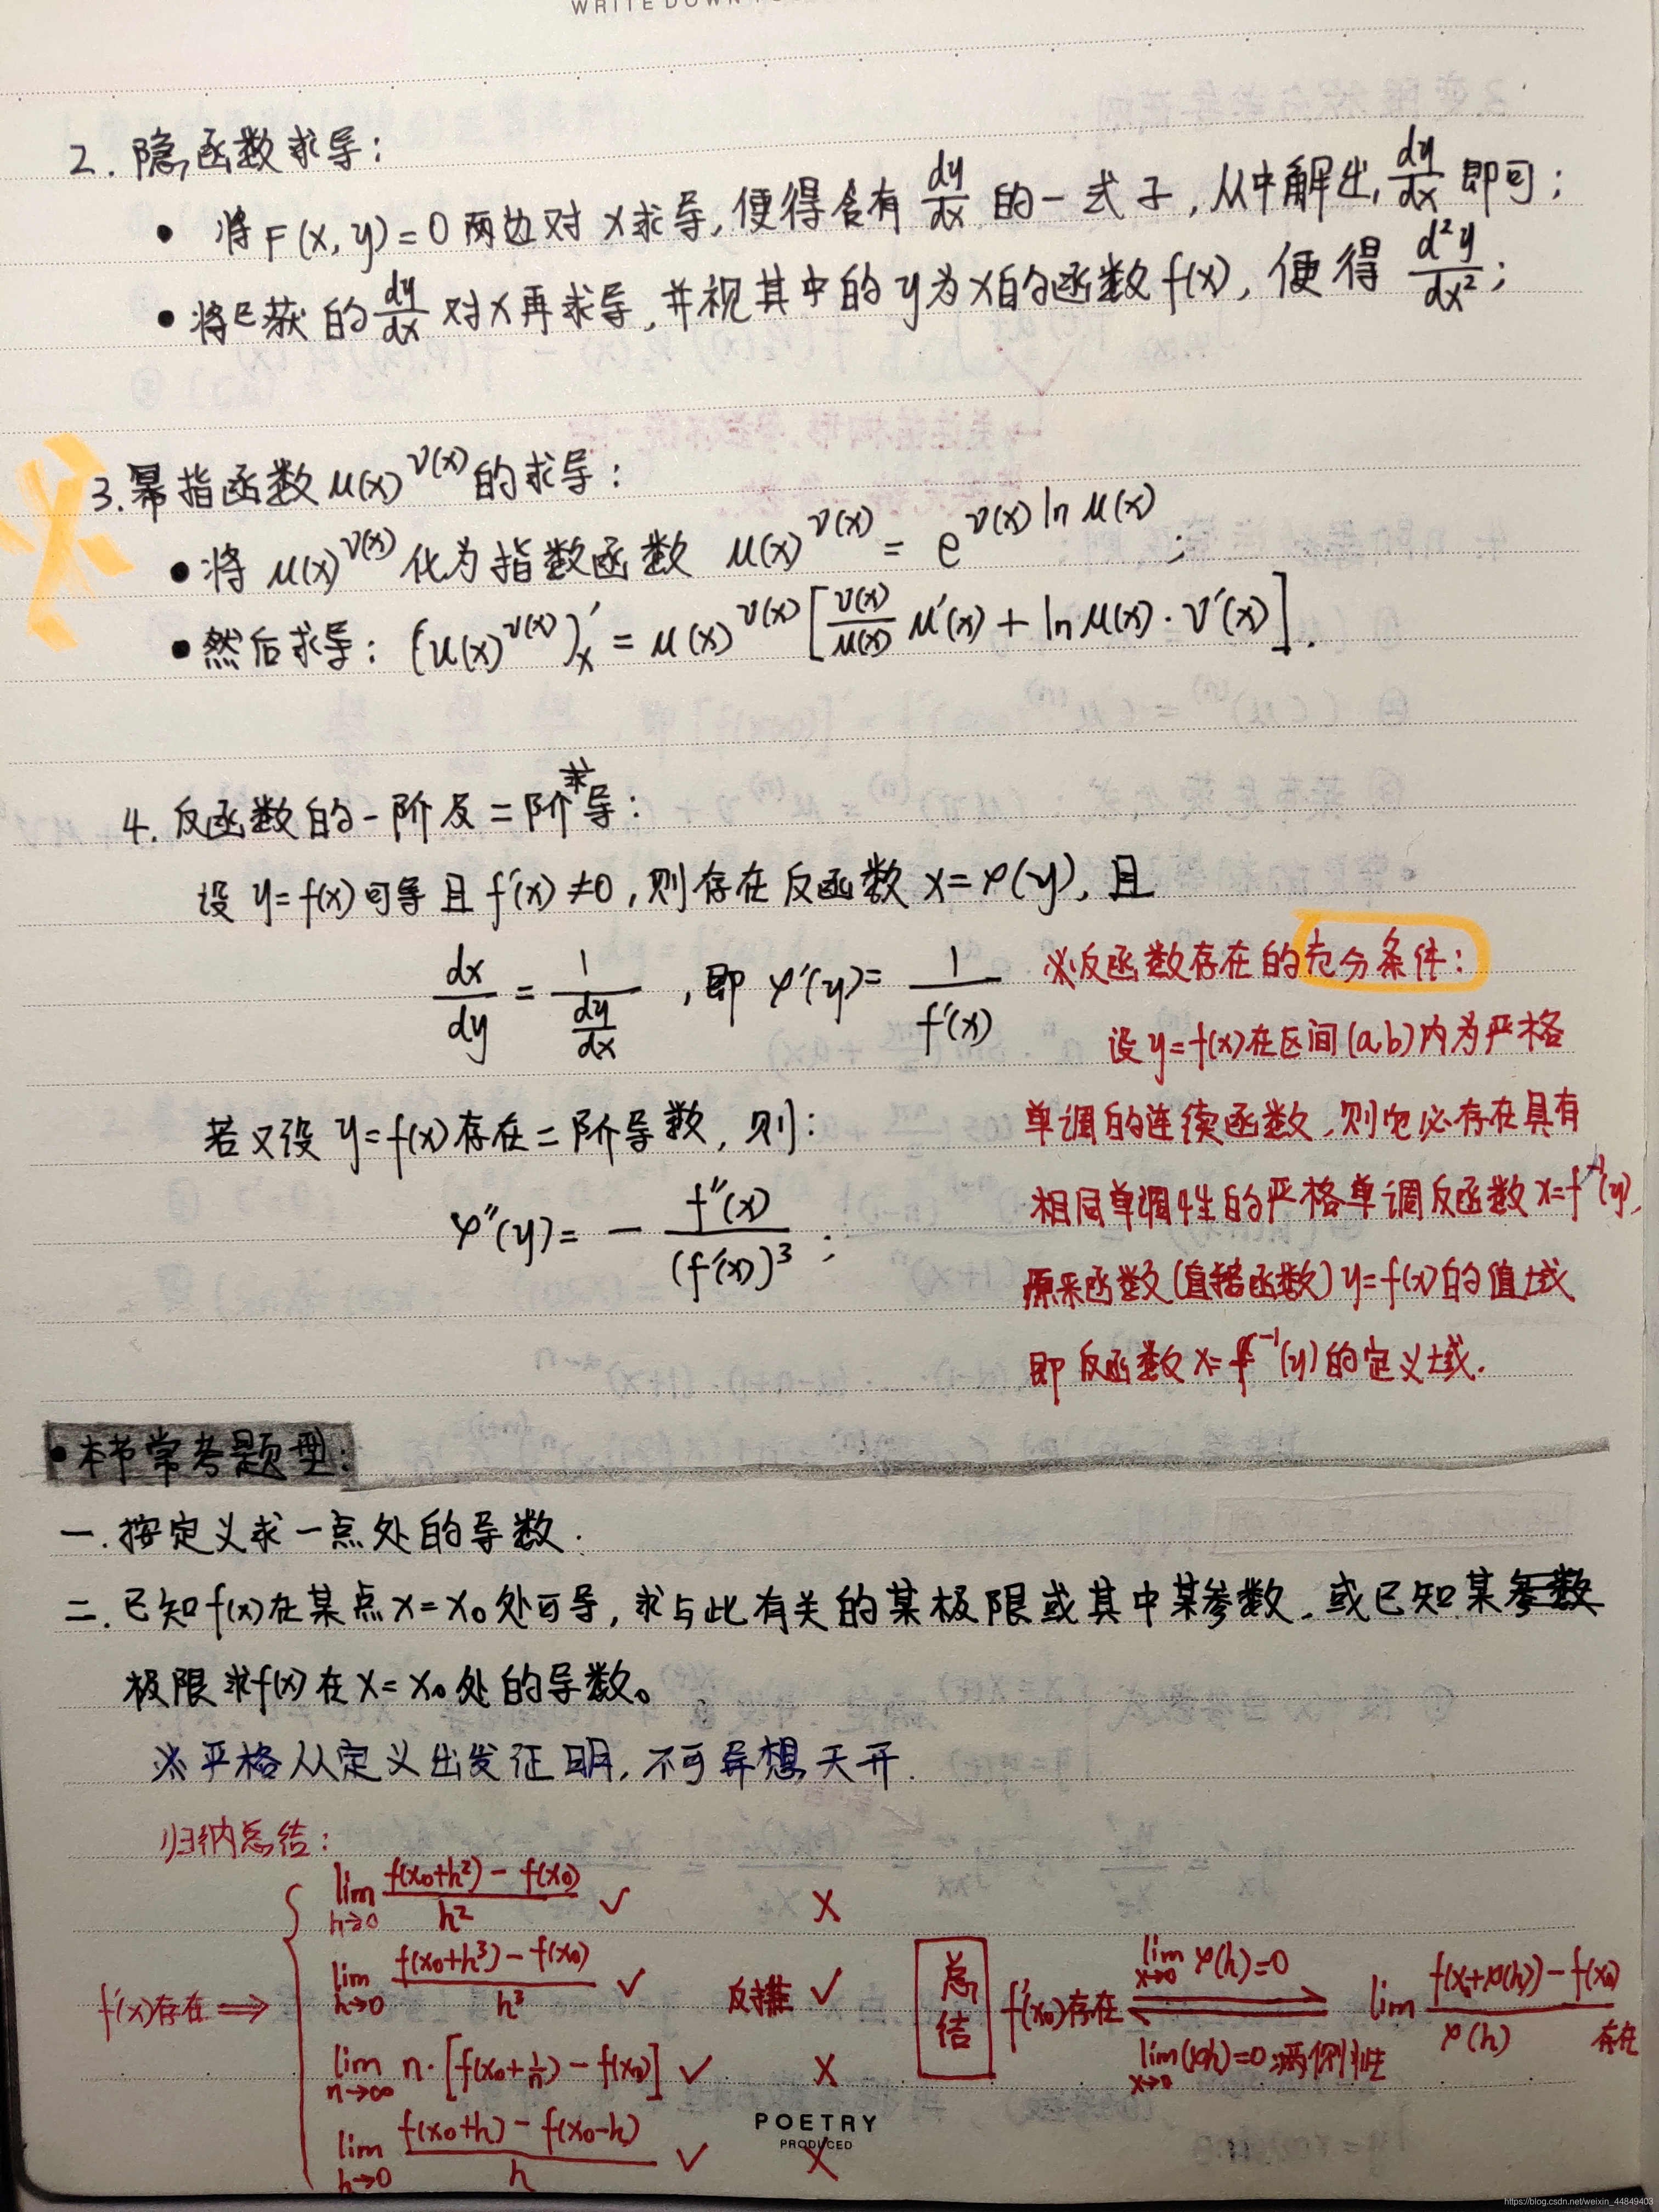 WRITE DOWN
2. 隐函数求导:
• 将F(x,y)=0两边对x求导,便得含有dy/dx的一式子,从中解出dy/dx即可;
• 将已获的dy/dx对x再求导,并视其中的y为x的函数f(x),便得d²y/dx²;
3. 幂指函数μ(x)^ν(x)的求导:
• 将μ(x)^ν(x)化为指数函数 μ(x)^ν(x) = e^ν(x)lnμ(x);
• 然后求导: (u(x)^ν(x))'ₓ = μ(x)^ν(x)[ν(x)/μ(x) μ'(x) + lnμ(x)·ν'(x)].
4. 反函数的一阶及二阶求导:
设y=f(x)可导且f'(x)≠0,则存在反函数x=φ(y),且
dx/dy = 1/(dy/dx), 即 φ'(y)= 1/f'(x)
若又设y=f(x)存在二阶导数,则:
φ''(y)= - f''(x)/(f'(x))³;
※反函数存在的充分条件:
设y=f(x)在区间(a,b)内为严格
单调的连续函数,则它必存在具有
相同单调性的严格单调反函数x=f⁻¹(y),
原来函数(直接函数)y=f(x)的值域
即反函数x=f⁻¹(y)的定义域.
•本节常考题型:
一.按定义求一点处的导数.
二.已知f(x)在某点x=x₀处可导,求与此有关的某极限或其中某参数,或已知某参数
极限求f(x)在x=x₀处的导数。
※严格从定义出发证明,不可异想天开.
归纳总结:
f'(x)存在 ⇒
lim h→0 (f(x₀+h²)-f(x₀))/h² ✓ ×
lim h→0 (f(x₀+h³)-f(x₀))/h³ ✓ 反推 ✓
lim n→∞ n·[f(x₀+1/n)-f(x₀)] ✓ ×
lim h→0 (f(x₀+h)-f(x₀-h))/h ✓ ×
总结
f'(x₀)存在
lim x→0 φ(h)=0
lim (f(x₀+φ(h))-f(x₀))/φ(h) 存在
POETRY
PRODUCED
https://blog.csdn.net/weixin_44849403